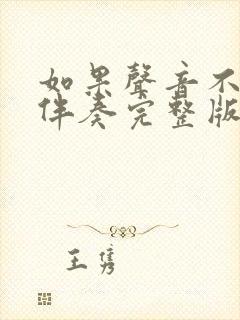 如果聲音不
伴奏完整版
王雋